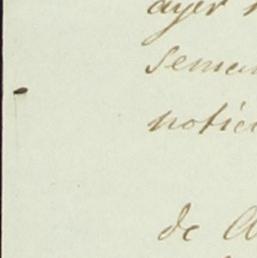 ayer
seman
notici
de